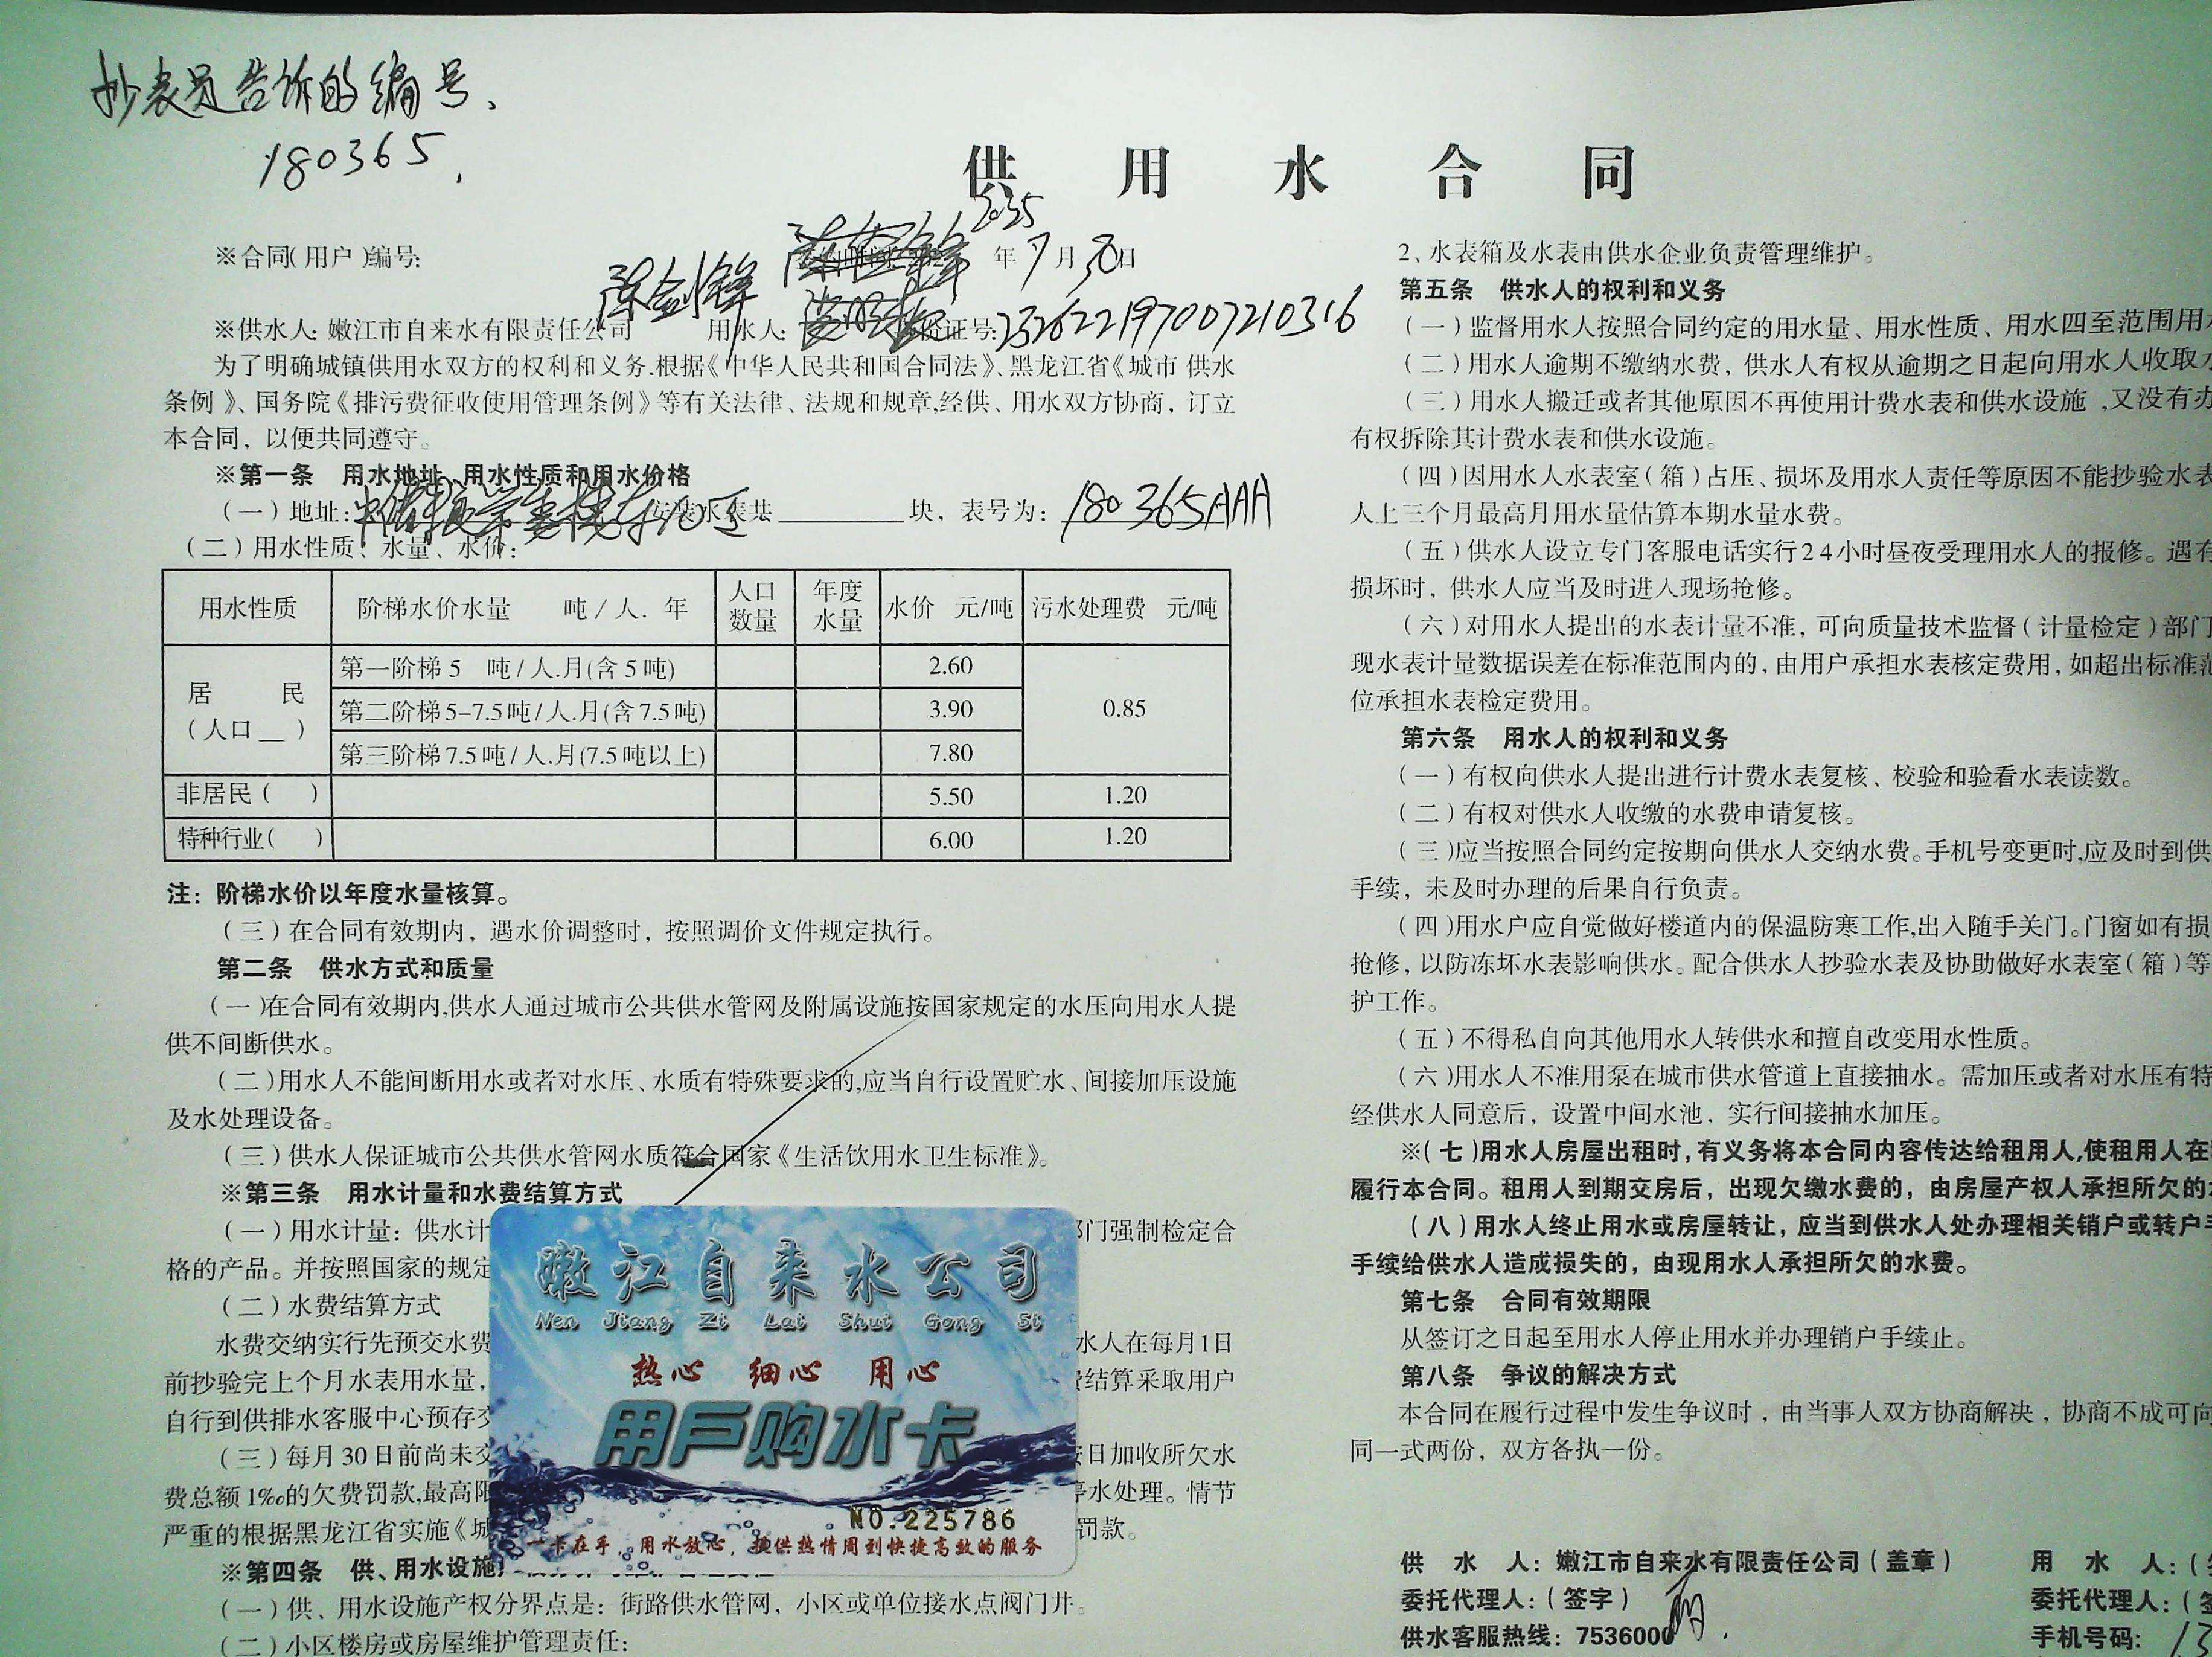 抄表员告诉的编号、
180365.
供用水合同
※合同(用户)编号:
2025年7月30日
陈剑锋
※供水人:嫩江市自来水有限责任公司 用水人: 证号:232622197007210316
为了明确城镇供用水双方的权利和义务.根据《中华人民共和国合同法》、黑龙江省《城市 供水
条例》、国务院《排污费征收使用管理条例》等有关法律、法规和规章,经供、用水双方协商，订立
本合同，以便共同遵守。
※第一条 用水地址、用水性质和用水价格
(一)地址: 安装水表共____块，表号为:180365AAA
(二)用水性质、水量、水价:
用水性质 阶梯水价水量 吨/人.年 人口数量 年度水量 水价 元/吨 污水处理费 元/吨
居民(人口__) 第一阶梯5 吨/人.月(含5吨) 2.60 0.85
第二阶梯5-7.5吨/人.月(含7.5吨) 3.90
第三阶梯7.5吨/人.月(7.5吨以上) 7.80
非居民( ) 5.50 1.20
特种行业( ) 6.00 1.20
注：阶梯水价以年度水量核算。
(三)在合同有效期内，遇水价调整时，按照调价文件规定执行。
第二条 供水方式和质量
(一)在合同有效期内,供水人通过城市公共供水管网及附属设施按国家规定的水压向用水人提
供不间断供水。
(二)用水人不能间断用水或者对水压、水质有特殊要求的,应当自行设置贮水、间接加压设施
及水处理设备。
(三)供水人保证城市公共供水管网水质符合国家《生活饮用水卫生标准》。
※第三条 用水计量和水费结算方式
(一)用水计量：供水计 部门强制检定合
格的产品。并按照国家的规定
(二)水费结算方式
水费交纳实行先预交水费 水人在每月1日
前抄验完上个月水表用水量， 费结算采取用户
自行到供排水客服中心预存交
(三)每月30日前尚未交 按日加收所欠水
费总额1‰的欠费罚款,最高限 停水处理。情节
严重的根据黑龙江省实施《城 罚款。
※第四条 供、用水设施
(一)供、用水设施产权分界点是：街路供水管网，小区或单位接水点阀门井。
(二)小区楼房或房屋维护管理责任:
嫩江自来水公司
Nen Jiang Zi Lai Shui Gong Si
热心 细心 用心
用户购水卡
NO.225786
一卡在手，用水放心，提供热情周到快捷高效的服务
2、水表箱及水表由供水企业负责管理维护。
第五条 供水人的权利和义务
(一)监督用水人按照合同约定的用水量、用水性质、用水四至范围用水
(二)用水人逾期不缴纳水费，供水人有权从逾期之日起向用水人收取水
(三)用水人搬迁或者其他原因不再使用计费水表和供水设施,又没有办
有权拆除其计费水表和供水设施。
(四)因用水人水表室(箱)占压、损坏及用水人责任等原因不能抄验水表
人上三个月最高月用水量估算本期水量水费。
(五)供水人设立专门客服电话实行24小时昼夜受理用水人的报修。遇有
损坏时，供水人应当及时进入现场抢修。
(六)对用水人提出的水表计量不准，可向质量技术监督(计量检定)部门
现水表计量数据误差在标准范围内的，由用户承担水表核定费用，如超出标准范
位承担水表检定费用。
第六条 用水人的权利和义务
(一)有权向供水人提出进行计费水表复核、校验和验看水表读数。
(二)有权对供水人收缴的水费申请复核。
(三)应当按照合同约定按期向供水人交纳水费。手机号变更时,应及时到供
手续，未及时办理的后果自行负责。
(四)用水户应自觉做好楼道内的保温防寒工作,出入随手关门。门窗如有损
抢修，以防冻坏水表影响供水。配合供水人抄验水表及协助做好水表室(箱)等
护工作。
(五)不得私自向其他用水人转供水和擅自改变用水性质。
(六)用水人不准用泵在城市供水管道上直接抽水。需加压或者对水压有特
经供水人同意后，设置中间水池，实行间接抽水加压。
※(七)用水人房屋出租时,有义务将本合同内容传达给租用人,使租用人在
履行本合同。租用人到期交房后，出现欠缴水费的，由房屋产权人承担所欠的
(八)用水人终止用水或房屋转让，应当到供水人处办理相关销户或转户手
手续给供水人造成损失的，由现用水人承担所欠的水费。
第七条 合同有效期限
从签订之日起至用水人停止用水并办理销户手续止。
第八条 争议的解决方式
本合同在履行过程中发生争议时，由当事人双方协商解决，协商不成可向
同一式两份，双方各执一份。
供 水 人：嫩江市自来水有限责任公司(盖章) 用 水 人：(
委托代理人：(签字) 委托代理人：(签
供水客服热线：7536000 手机号码: 13